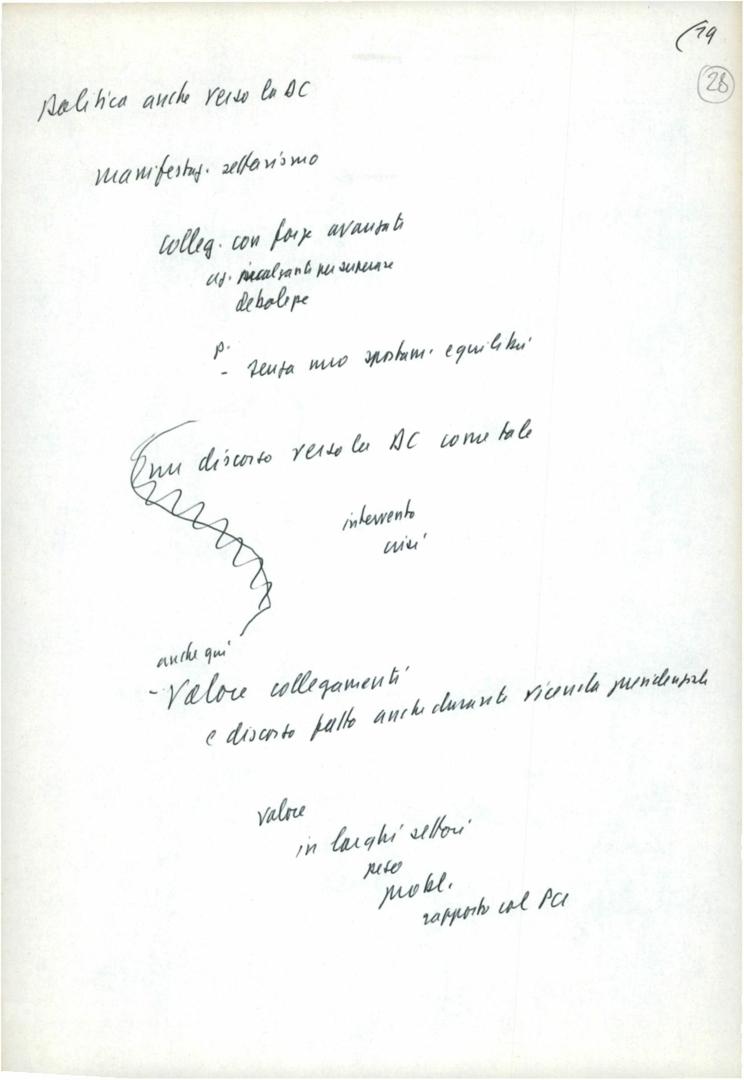 (19
28
Politica anche verso la DC
manifestaz. settarismo
colleg. con forze avanzate
es. incalzanti per superare
debolezze
p.
- senza mio spostam. equilibri
un discorso verso la DC come tale
intervento
crisi
anche qui
- Valore collegamenti
e discorso fatto anche durante vicenda presidenziale
valore
in larghi settori
peso
probl.
rapporto col PCI